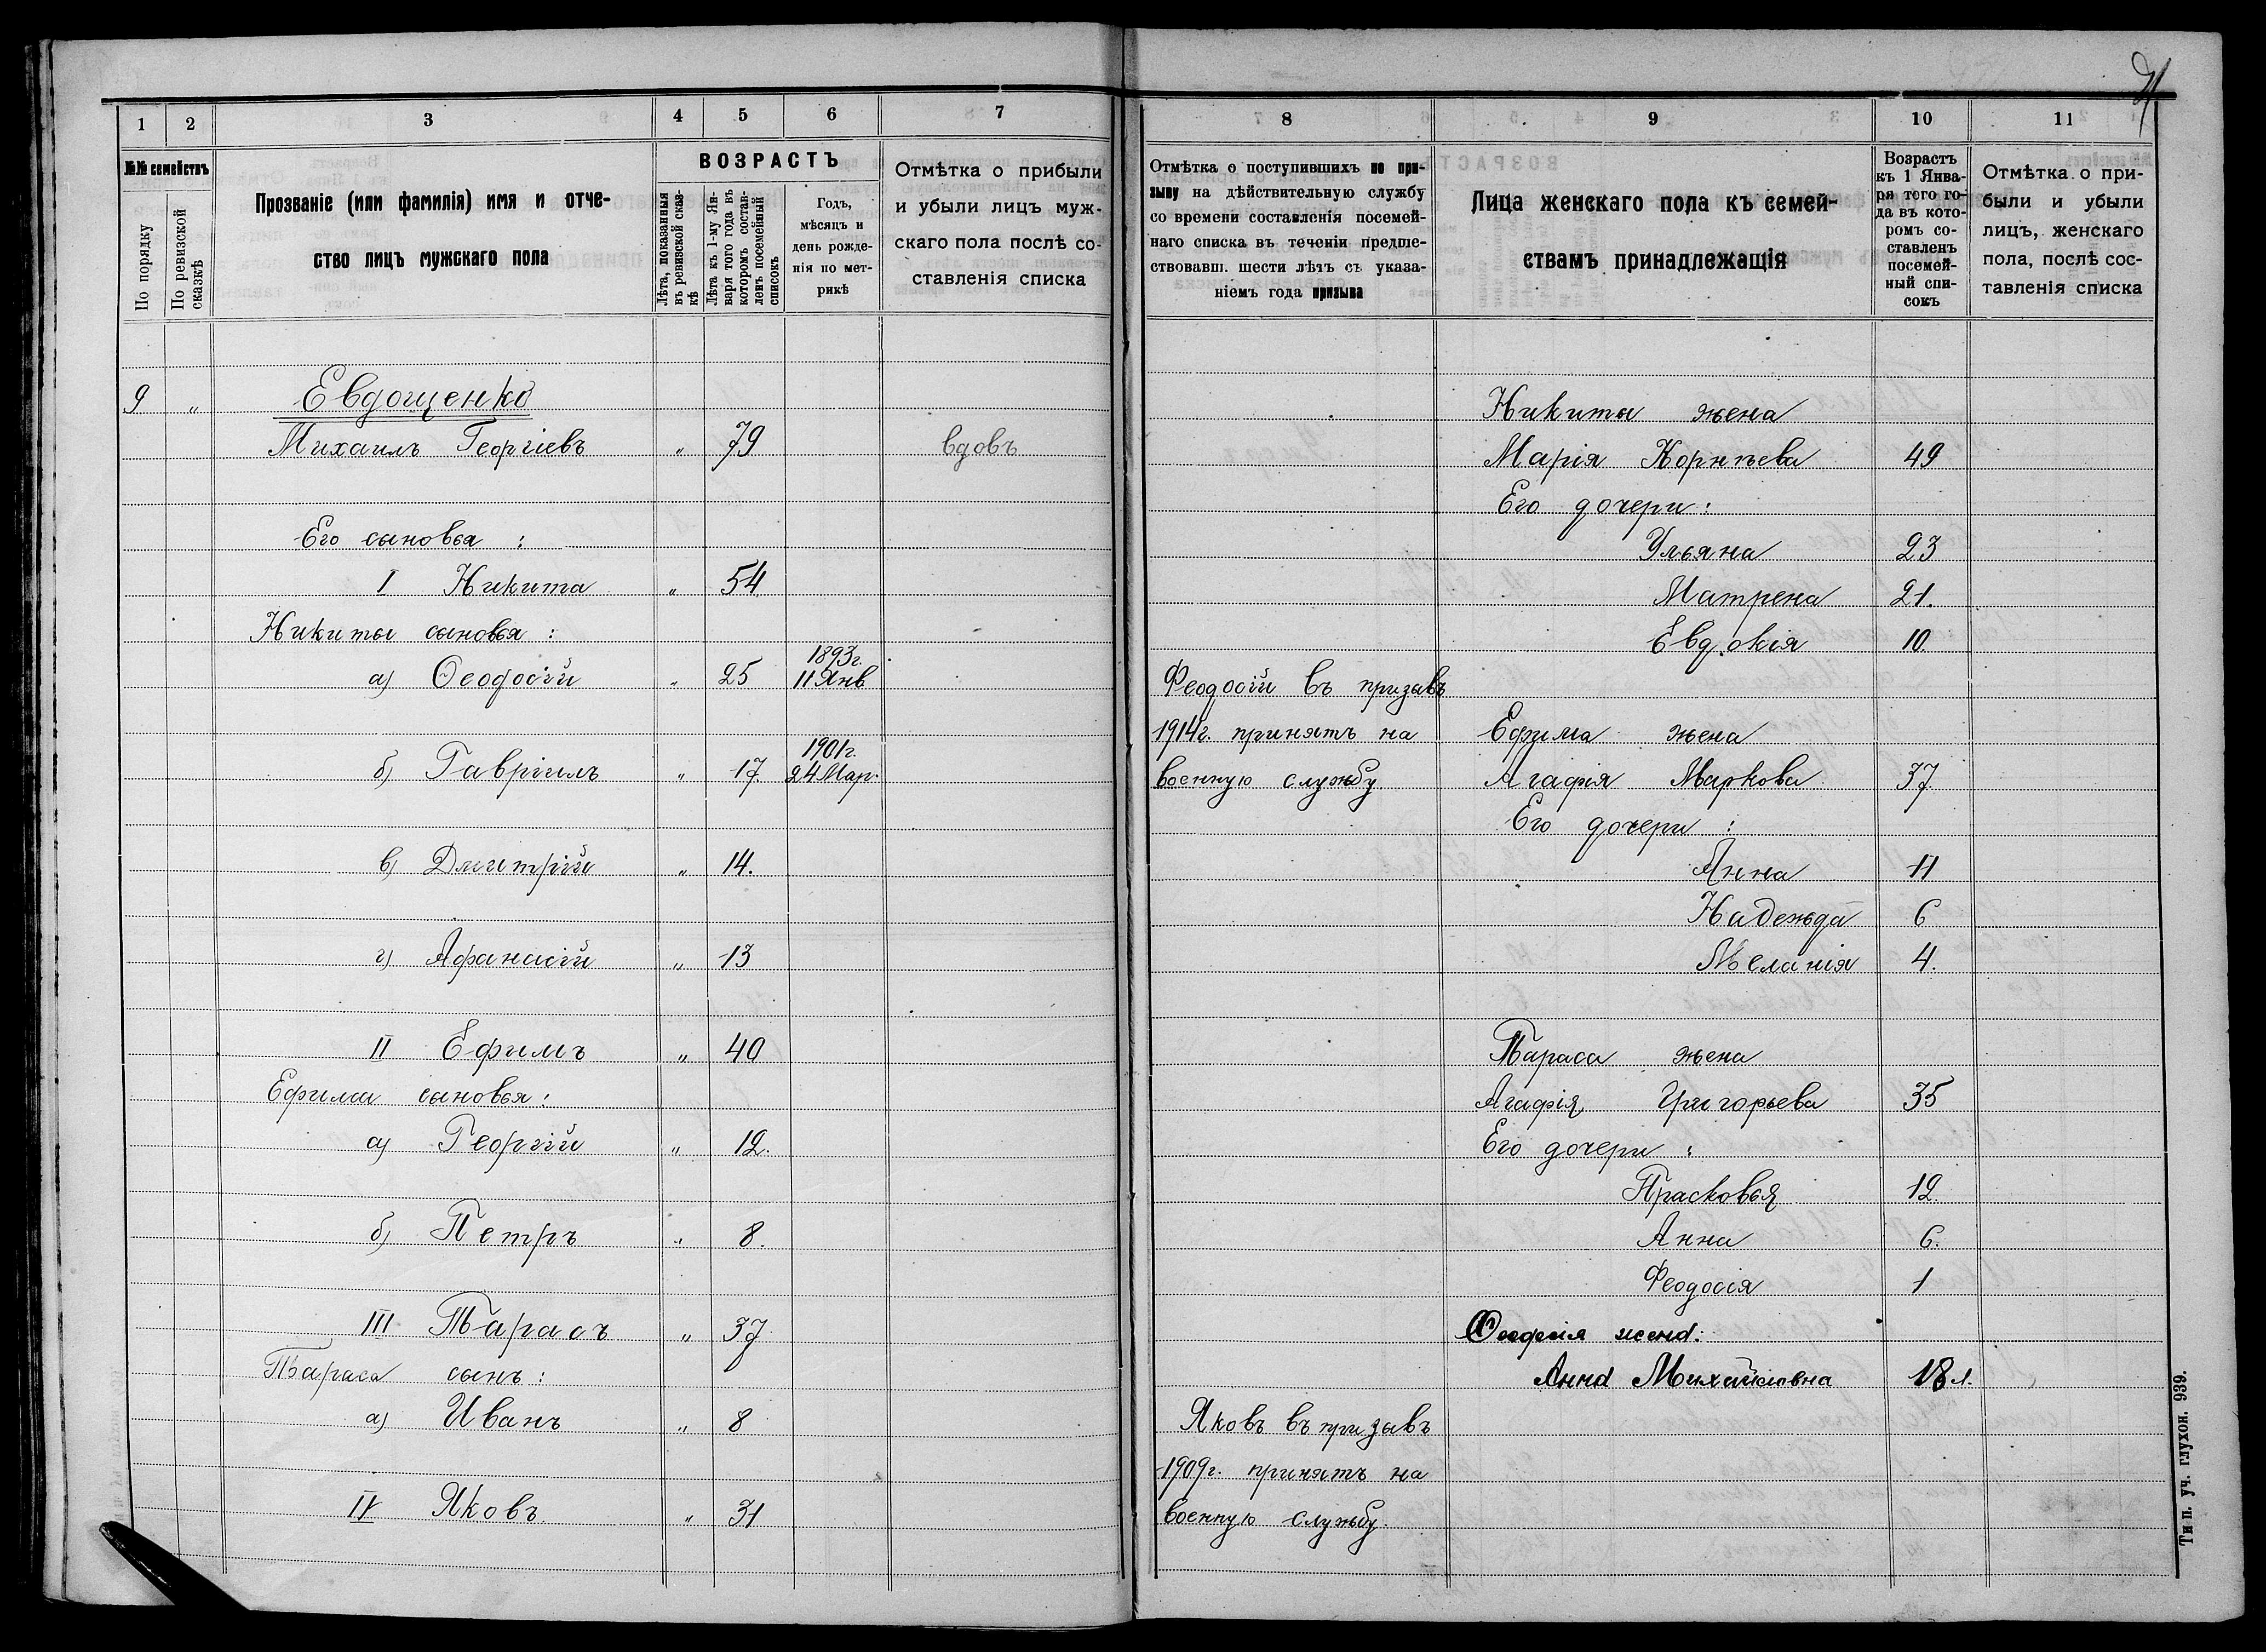 1 2 3 4 5 6 7
№№ семействъ
По порядку
По ревизской сказкѣ
Прозваніе (или фамилія) имя и отче-
ство лицъ мужскаго пола
ВОЗРАСТЪ
Лѣта, показанныя
въ ревизской сказ-
кѣ
Лѣта къ 1-му Ян-
варя того года въ
которомъ состав-
ленъ посемейный
списокъ
Годъ,
мѣсяцъ и
день рожде-
нія по мет-
рикѣ
Отмѣтка о прибыли
и убыли лицъ муж-
скаго пола послѣ со-
ставленія списка
9 " Евдощенко
Михаилъ Георгіевъ " 79 вдовъ
Его сыновья :
I Никита " 54
Никиты сыновья :
1893г.
а) Ѳеодосій " 25 11 Янв
1901г.
б) Гавріилъ " 17. 24 Мар.
в) Дмитрій " 14.
г) Афанасій " 13
II Ефимъ " 40
Ефима сыновья :
а) Георгій " 12.
б) Петръ " 8.
III Тарасъ " 37
Тараса сынъ :
а) Иванъ " 8
IV Яковъ " 31
8 9 10 11
Отмѣтка о поступившихъ по при-
зыву на дѣйствительную службу
со времени составленія посемей-
наго списка въ теченіи предше-
ствовавш. шести лѣтъ съ указа-
ніемъ года призыва
Лица женскаго пола къ семей-
ствамъ принадлежащія
Возрастъ
къ 1 Янва-
ря того го-
да въ кото-
ромъ со-
ставленъ
посемей-
ный спи-
сокъ
Отмѣтка о при-
были и убыли
лицъ, женскаго
пола, послѣ сос-
тавленія списка
Никиты жена
Марія Корнѣева 49
Его дочери :
Ульяна 23
Матрена 21.
Евдокія 10.
Феодосій въ призывъ
1914г. принятъ на Ефима жена
военную службу Агафія Маркова 37
Его дочери :
Анна 11
Надежда 6
Меланія 4.
Тараса жена
Агафія Григорьева 35
Его дочери :
Прасковья 12.
Анна 6.
Феодосія 1
Ѳеодосія жена:
Анна Михайловна 18 л.
Яковъ въ призывъ
1909г. принятъ на
военную службу.
Тип. уч. глухон. 939.